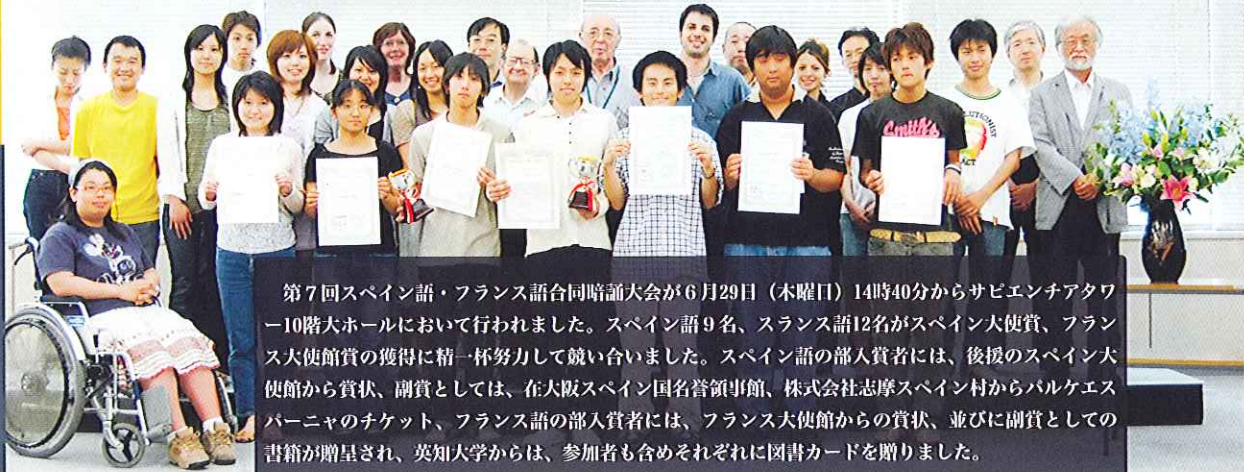 Smith's
第７回スペイン語・フランス語合同暗誦大会が６月29日（木曜日）14時40分からサピエンチアタワ
ー10階大ホールにおいて行われました。スペイン語９名、スランス語12名がスペイン大使賞、フラン
ス大使館賞の獲得に精一杯努力して競い合いました。スペイン語の部入賞者には、後援のスペイン大
使館から賞状、副賞としては、在大阪スペイン国名誉領事館、株式会社志摩スペイン村からパルケエス
パーニャのチケット、フランス語の部入賞者には、フランス大使館からの賞状、並びに副賞としての
書籍が贈呈され、英知大学からは、参加者も含めそれぞれに図書カードを贈りました。